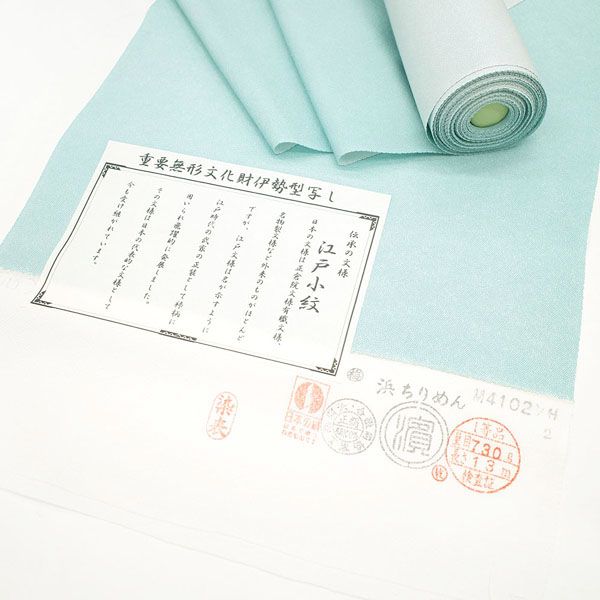 重要無形文化財伊勢型写し
伝承の文様
江戸小紋
日本の文様は正倉院文様有職文様、
名物裂文様など外来のものがほとんど
ですが、江戸文様は名が示すように
江戸時代の武家の正装として裃柄に
用いられ飛躍的に発展しました。
その文様は日本の代表的な文様として
今も受け継がれています。
浜ちりめん
M4102
H
2
日本の絹
濱
1等品
730g
長さ13m
検査証
染夫